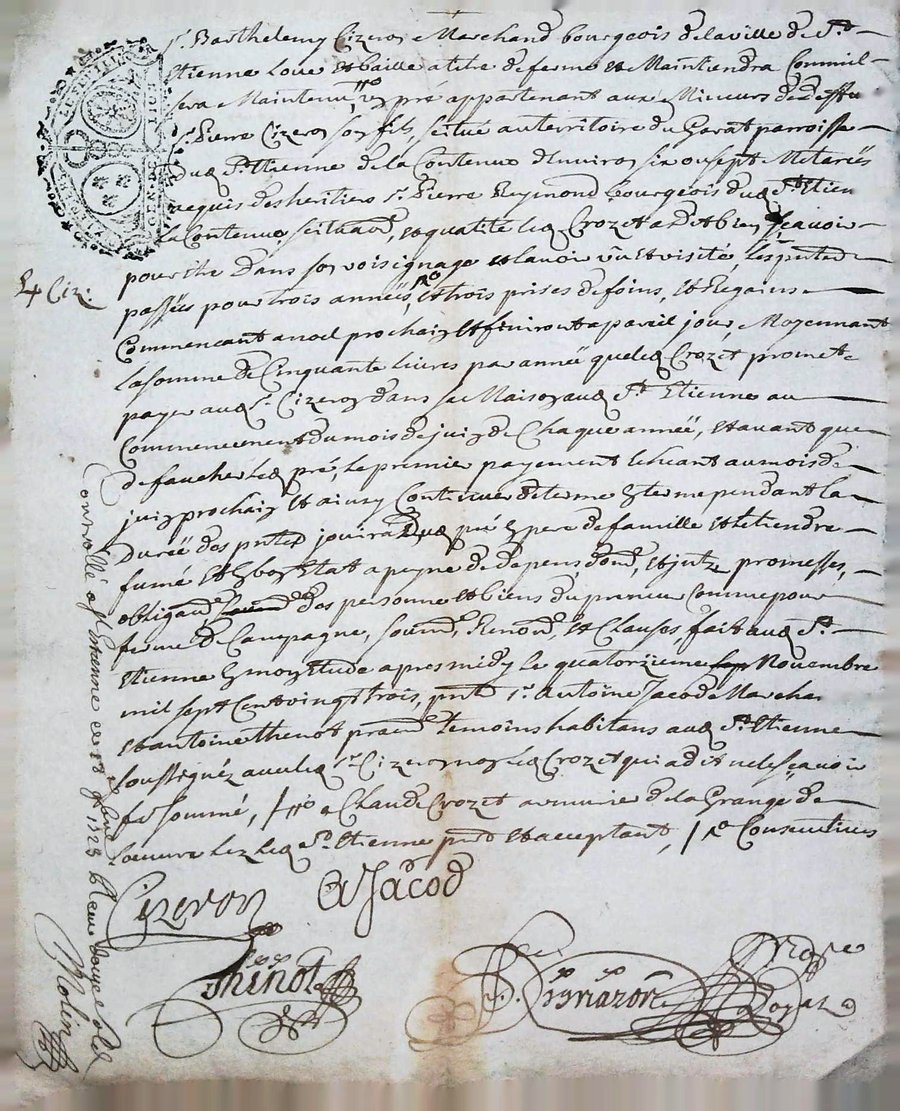 Sr. Barthelemy Cizeron Marchand bourgeois de la ville de St.
Etienne loue et baille a titre de ferme et Maintiendra
sera Maintenu, pré appartenant aux Mineurs de deffu
Sr. Pierre Cizeron son fils, scitué au territoire du Garat parroisse
dud. St. Etienne de la Contenue d'Environ six ou sept Meterées
acquis des heritiers Sr. Pierre Reymond bourgeois dud. St. Etien
la Contenue, scituaon, et qualité led. Crozet a dit bien sçavoir
pour être dans son voisignage et lavoir vû et visité, les pntes
passées pour trois années, et trois prises de foins, et Regains
Commencant a noel prochain et finiront a pareil jour, Moyennant
la somme de Cinquante livres par année que led. Crozet promet
payer aud. Sr. Cizeron dans sa Maison aud. St. Etienne au
Commencement du mois de juin de Chaque année, et avant que
de faucher led. pré, le premier payement Echeant au mois de
juin prochain et ainsy Continuer de terme En terme pendant la
Durée des pntes jouira dud. pré En pere de famille et le tiendra
fumé et En bon Etat a peyne de depens, dom, promesses,
obligaon des personne et biens du preneur Comme pour
ferme de Campagne, soumon, Renonon, et Clauses, fait aud. St.
Etienne En mon Etude apres midy le quatorzieme Novembre
mil sept Cent vingt trois, pnts Sr. antoine Jacod Marchan
et antoine thenot pratn temoins habitans aud. St. Etienne
soussignéz avec led. Sr. Cizeron non led. Crozet qui a dit ne le sçavoir
de ce sommé, / Claude Crozet de la Grange de
loeuvre lez led. St. Etienne pnt et acceptant, / Consecutives
4 Ciz:
Controllé a St Etienne le 18 9bre 1723
Cizeron
A Jacod
thinot
Royale
Molin